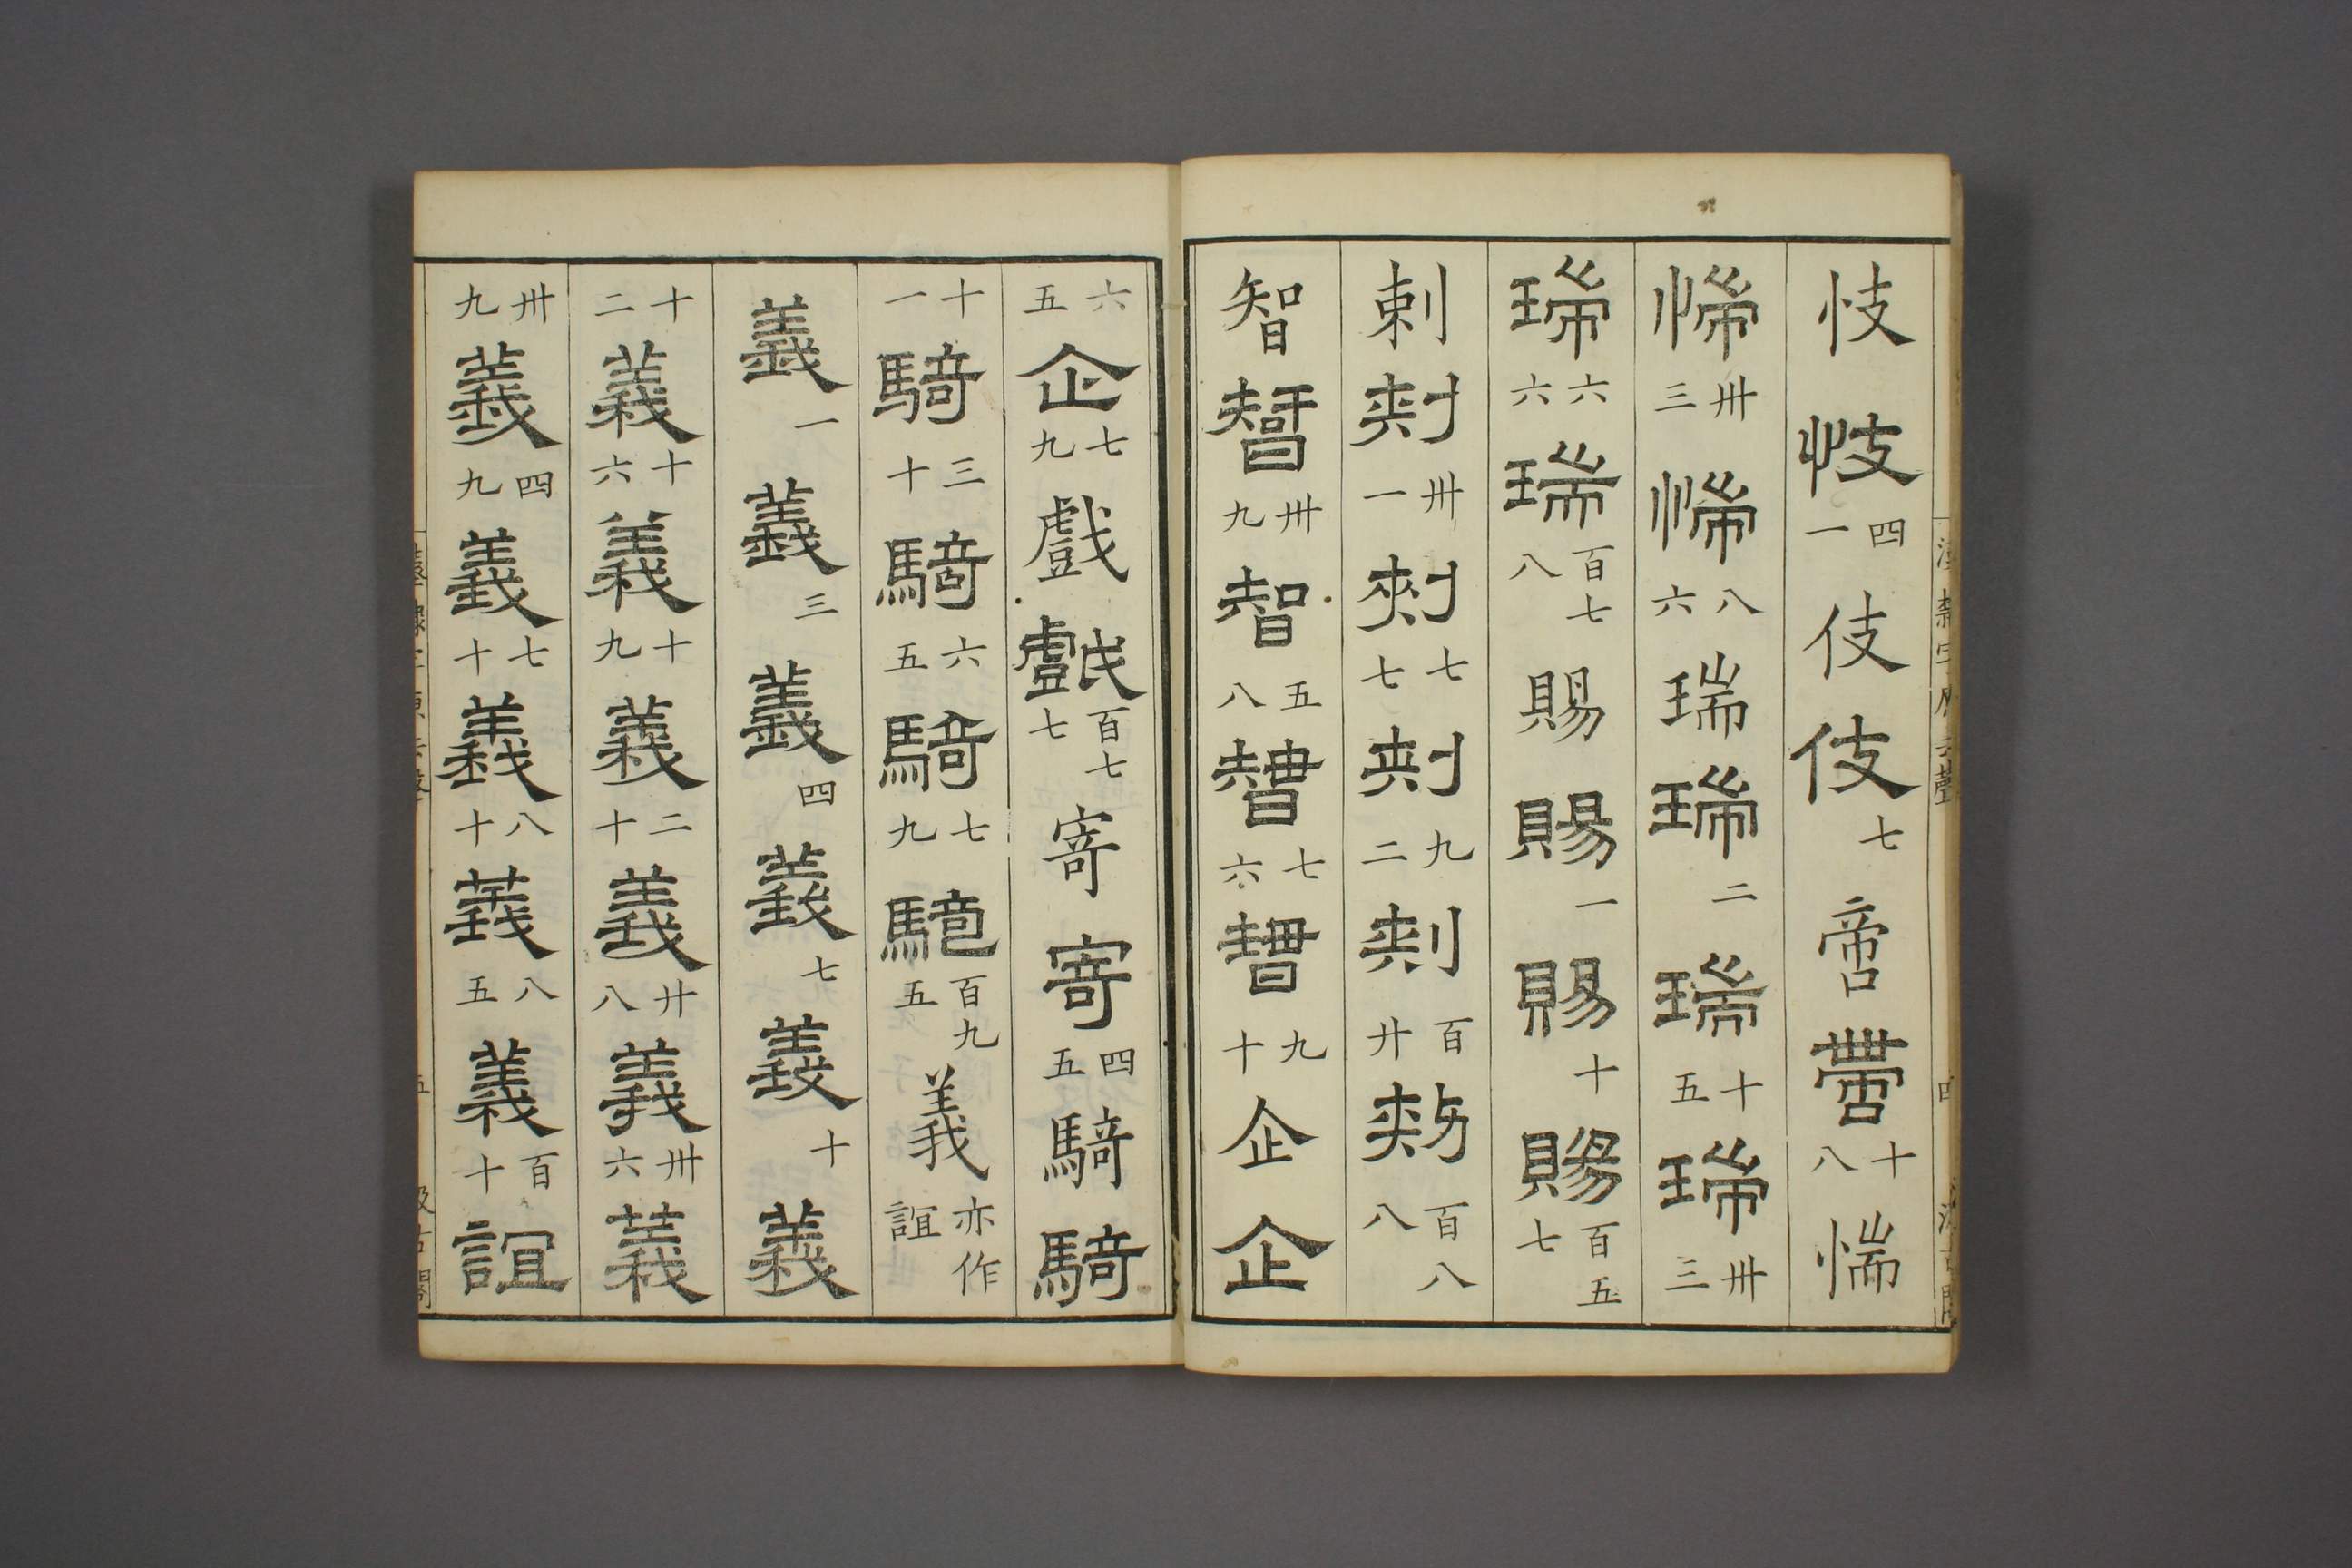 漢隸字原去聲 四 汲古閣
忮忮四一伎伎七啻啻十八惴
惴卅三惴八六瑞瑞二瑞十五瑞卅三
瑞六六瑞百七八賜賜一賜十賜百五七
刺刺卅一刺七七刺九二刺百廿刺百八八
智智卅九智五八智七六智九十企企
六五企七九戲戲百七七寄寄四五騎騎
十一騎三十騎六五騎七九騎百九五義亦作誼
義一義三義四義七義十義
十二義十六義十九義二十義廿八義卅六義
卅九義四九義七十義八十義八五義百十誼
漢隸字原去聲 五 汲古閣